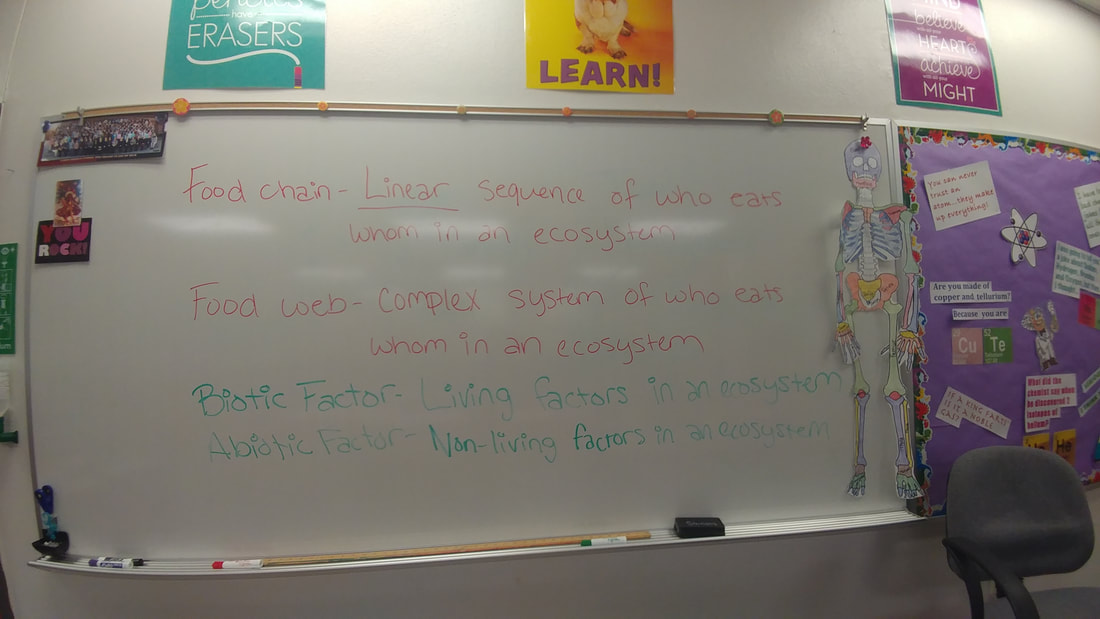 have
ERASERS
LEARN!
believe
HEART
achieve
with all your
MIGHT
YOU
ROCK!
Food chain - Linear sequence of who eats
whom in an ecosystem
Food web - Complex system of who eats
whom in an ecosystem
Biotic Factor - Living factors in an ecosystem
Abiotic Factor - Non-living factors in an ecosystem
You can never
trust an
atom...they make
up everything!
Are you made of
copper and tellurium?
Because you are
29
Cu
52
Te
IF A KING FARTS
IS IT A NOBLE
GAS?
What did the
chemist say when
he discovered 2
isotopes of
helium?
He He